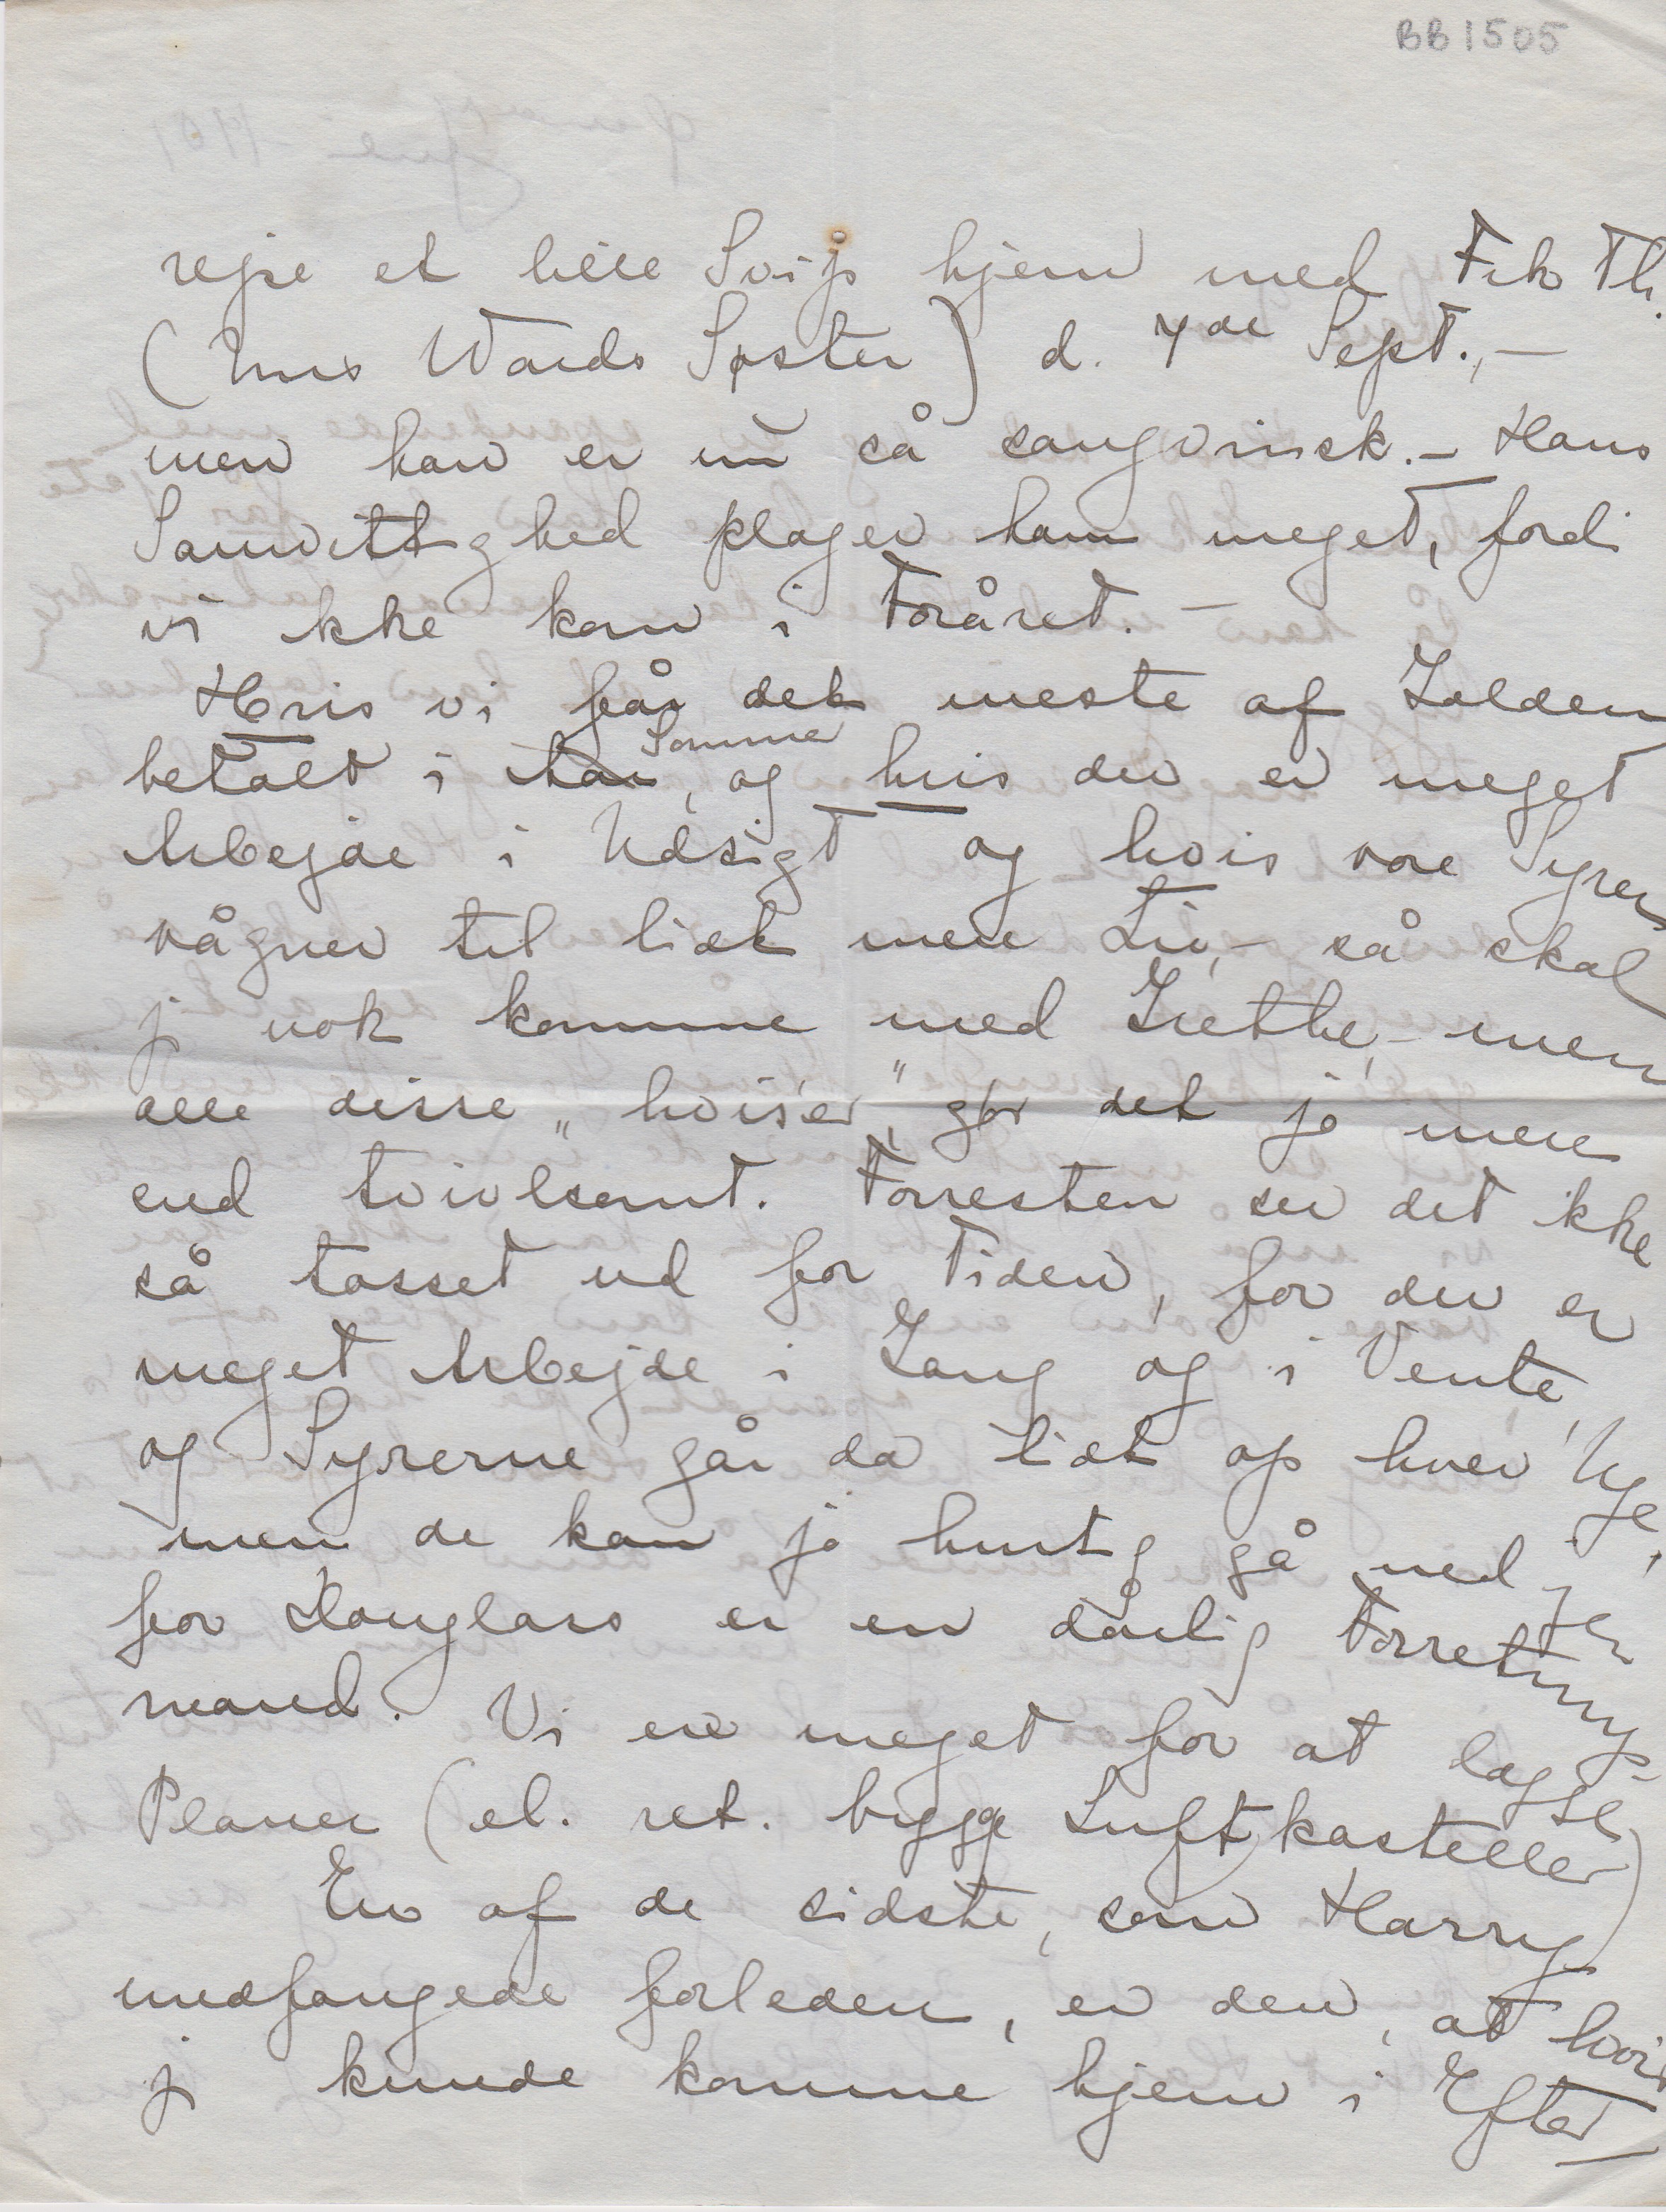 BB1505
rejse et lille Svip hjem med Frk Th.
(Mrs Wards Søster) d. 7de Sept., –
men han er nu så sangvinsk. – Hans
Samvittighed plager ham meget, fordi
vi ikke kom i Foråret. –
Hvis vi får det meste af Gælden
betalt i Sommer, og hvis der er meget
Arbejde i Udsigt og hvis vore Syrer
vågner til lidt mere Liv, – så skal
j nok komme med Grethe, – men
alle disse „hviser” gør det jo mere
end tvivlsomt. Forresten ser det ikke
så tosset ud for Tiden, for der er
meget Arbejde i Gang og i Vente,
og Syrerne går da lidt op hver Uge,
men de kan jo hurtig gå ned igen
for Houglass er en dårlig Forretnings-
mand. Vi ere meget for at lægge
Planer (el. ret. bygge Luftkasteller)
En af de sidste, som Harry
undfangede forleden, er den, at hvis
j kunde komme hjem i Efter–